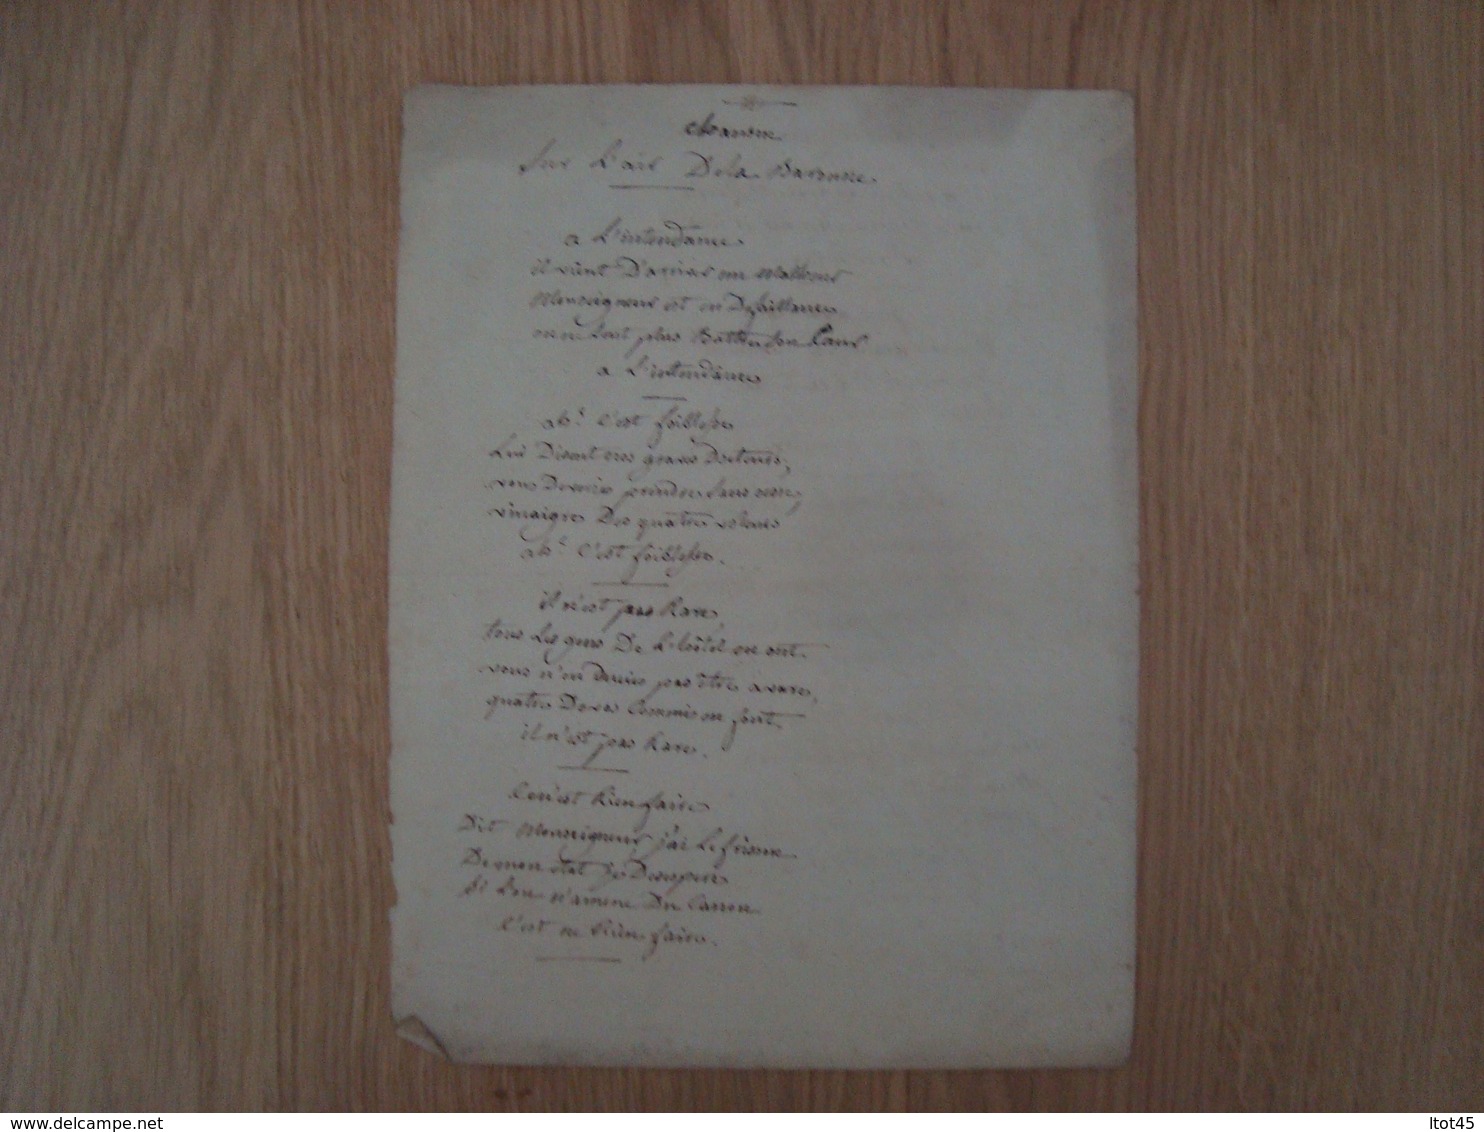 chanson
sur l'air De la Baronne
a L'intendance
il vient D'arriver un malheur
Monseigneur est en Defaillance
on ne sent plus Battre son Cœur
a L'intendance
c'est foiblesse
Lui Disent nos graves Docteurs,
vous Devriés prendre sans cesse,
vinaigre Des quatre voleurs
c'est foiblesse.
il n'est pas Rare,
tous Les gens De L'hôtel en ont
vous n'en Deviés pas être avare,
quatre De vos Commis en font.
il n'est pas Rare.
Ce n'est Rien faire
Dit Monseigneur, j'ai Le frisson
De mon état je Desespere
Si L'on n'amene Du Carron
C'est ne Rien faire.
ltot45